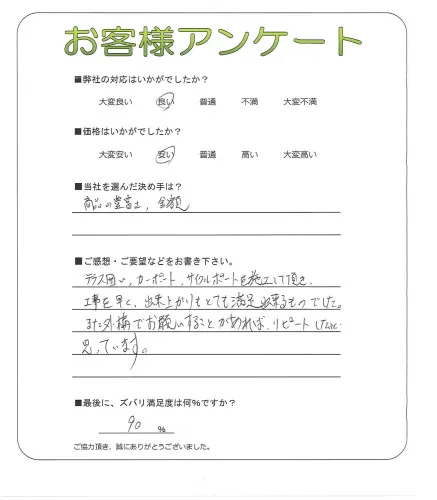 お客様アンケート
■弊社の対応はいかがでしたか？
大変良い 良い 普通 不満 大変不満
■価格はいかがでしたか？
大変安い 安い 普通 高い 大変高い
■当社を選んだ決め手は？
商品の豊富さ、金額
■ご感想・ご要望などをお書き下さい。
テラス囲い、カーポート、サイクルポートを施工して頂き、
工事も早く、出来上がりもとても満足出来るものでした。
また外構でお願いすることがあれば、リピートしたいと
思っています。
■最後に、ズバリ満足度は何％ですか？
90 ％
ご協力頂き、誠にありがとうございました。